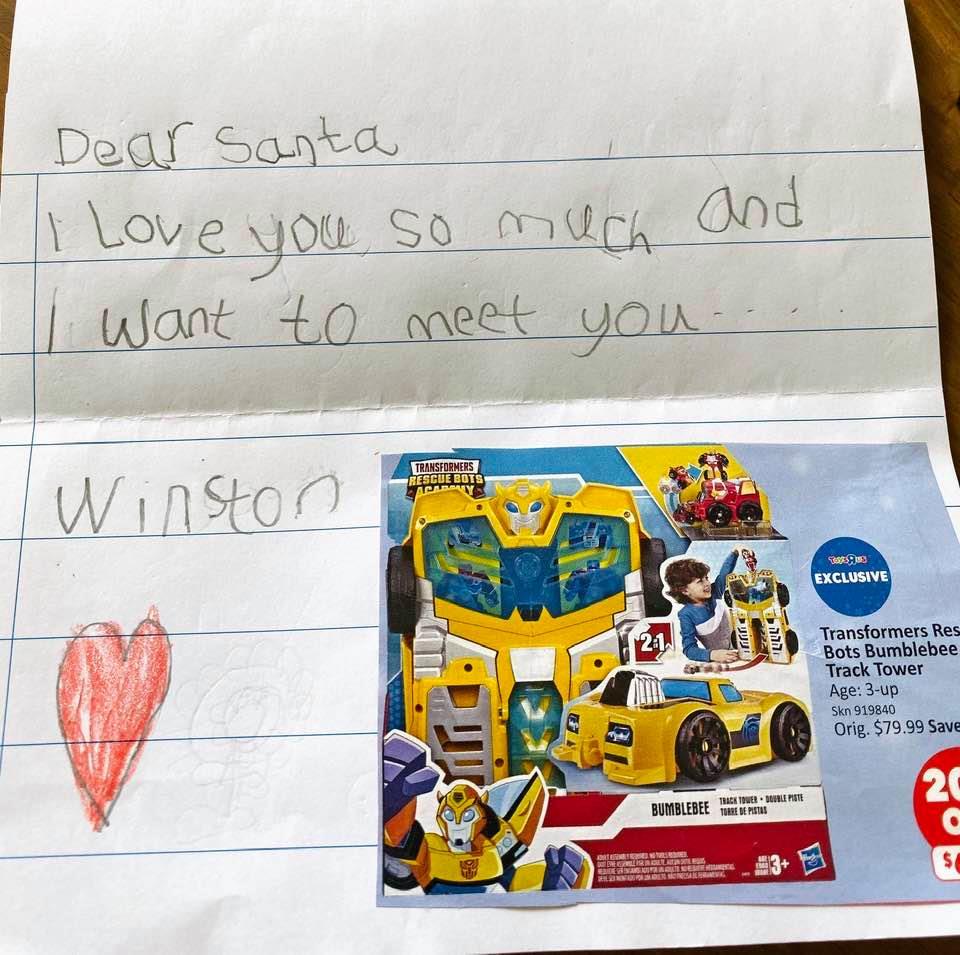 Dear Santa
I Love you so much and
I want to meet you.....
Winston
TRANSFORMERS
RESCUE BOTS
ACADEMY
2in1
Toys R Us
EXCLUSIVE
Transformers Res
Bots Bumblebee
Track Tower
Age: 3-up
Skn 919840
Orig. $79.99 Save
20
O
$6
BUMBLEBEE
TRACK TOWER • DOUBLE PISTE
TORRE DE PISTAS
ADULT ASSEMBLY REQUIRED. NO TOOLS REQUIRED.
3+
Hasbro